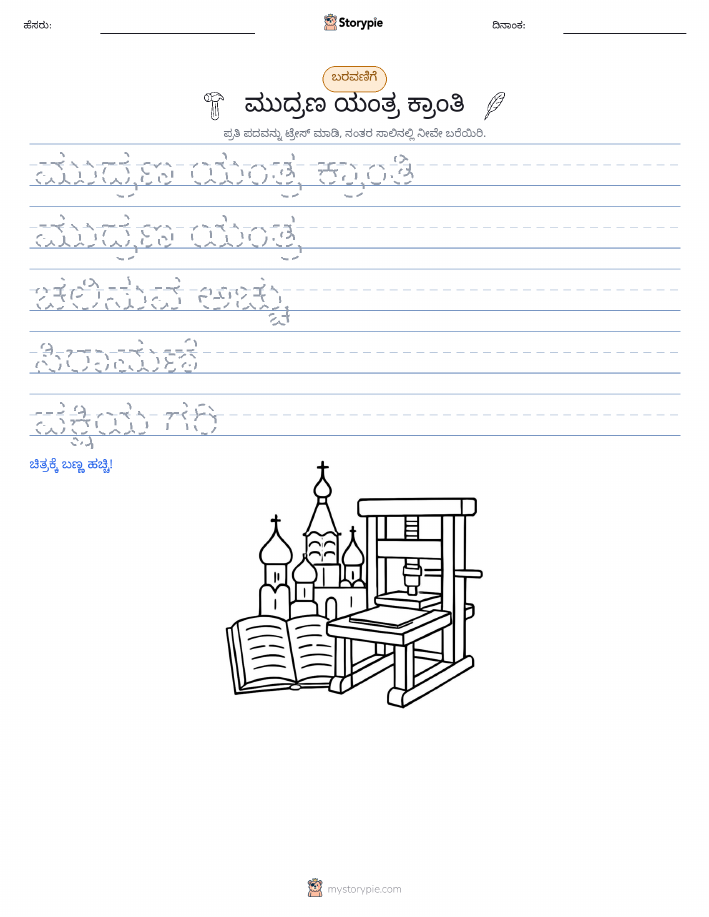 ಹೆಸರು:
Storypie
ದಿನಾಂಕ:
ಬರವಣಿಗೆ
ಮುದ್ರಣ ಯಂತ್ರ ಕ್ರಾಂತಿ
ಪ್ರತಿ ಪದವನ್ನು ಟ್ರೇಸ್ ಮಾಡಿ, ನಂತರ ಸಾಲಿನಲ್ಲಿ ನೀವೇ ಬರೆಯಿರಿ.
ಮುದ್ರಣ ಯಂತ್ರ ಕ್ರಾಂತಿ
ಮುದ್ರಣ ಯಂತ್ರ
ಚಲಿಸುವ ಅಚ್ಚು
ಸಿರಾಮಣಿ
ಪಕ್ಷಿಯ ಗರಿ
ಚಿತ್ರಕ್ಕೆ ಬಣ್ಣ ಹಚ್ಚಿ!
mystorypie.com